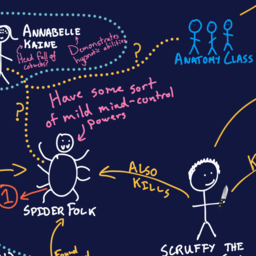 ANNABELLE
KAINE
Head full of
cobwebs?
Demonstrates
hypnotic abilities
?
ANATOMY CLASS
?
Have some sort
of mild mind-control
powers
1
SPIDER FOLK
ALSO
KILLS
K
SCRUFFY THE
Found